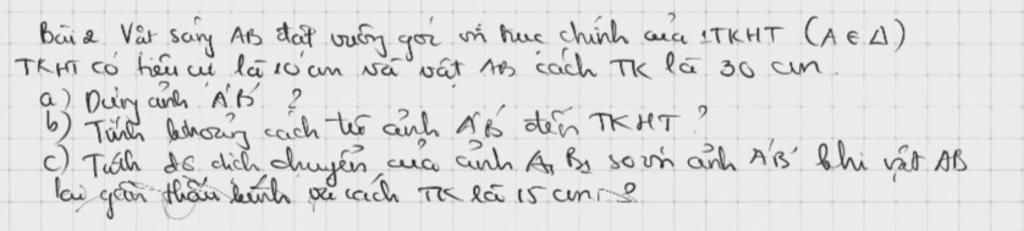 Bài 2. Vật sáng AB đặt vuông góc với trục chính của 1TKHT (A ∈ Δ)
TKHT có tiêu cự là 10 cm và vật AB cách TK là 30 cm.
a) Dựng ảnh A'B' ?
b) Tính khoảng cách từ ảnh A'B' đến TKHT ?
c) Tính độ dịch chuyển của ảnh A₁B₁ so với ảnh A'B' khi vật AB
lại gần thấu kính và cách TK là 15 cm ?